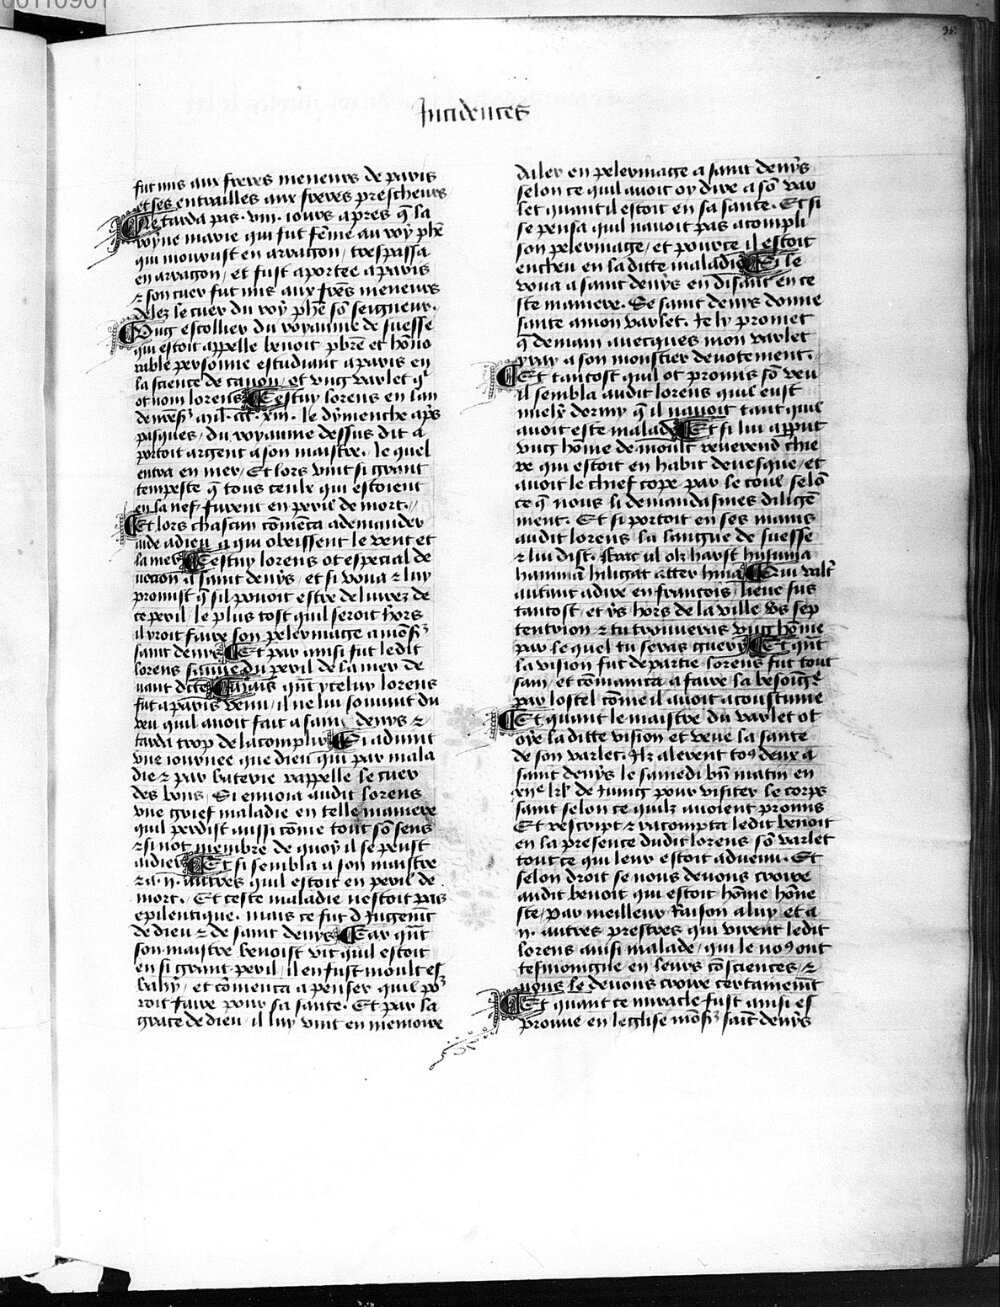 Incidences
fut mis aux freres meneurs de paris
et ses entrailles aux freres prescheurs
Ne tarda pas .viii. iours apres q̄ la
royne marie qui fut fēme au roy phē
qui mourust en arragon, trespassa
en arragon, et fust aportee a paris
⁊ son cuer fut mis aux frēs meneurs
delez le cuer du roy phē sō seigneur.
Vng escollier du royaume de suesse
qui estoit appelle benoit pbrē et hono
rable personne estudiant a paris en
la science de canon, et vng varlet qͥ
ot nom lorens Cestuy lorens en lan
de
pasques, du royaume dessus dit a
portoit argent a son maistre. le quel
entra en mer, Et lors vint si grant
tempeste q̄ tous ceulx qui estoient
en la nef, furent en peril de mort.
Et lors chascun cōmēca a demander
aide a dieu a qui obeissent le vent et
la mer Cestuy lorens ot especial de
uocion a saint denys, et si voua ⁊ luy
promist q̄ sil pouoit estre deliurez de
ce peril, le plus tost quil seroit hors
il yroit faire son pelerinage a monsʳ
saint denys Et par ainsi fut ledit
lorens sauue du peril de la mer de
uant dcte Mais qn̄t yceluy lorens
fut a paris venu, il ne lui souuint du
veu quil auoit fait a saint denys ⁊
tarda trop de lacomplir Si aduint
vne iournee que dieu qui par mala
die ⁊ par baterie rappelle le cuer
des bons, Si enuoia audit lorens
vne grief maladie en telle maniere
quil perdist aussi cōme tout sō sens
⁊ si not membre de quoy il se peust
aidier Et si sembla a son maistre
⁊ a .ii. autres quil estoit en peril de
mort. Et ceste maladie nestoit pas
epilentique. mais ce fut du iugemt
de dieu ⁊ de saint denys Car qn̄t
son maistre benoist vit quil estoit
en si grant peril, il en fust moult es
bahy, et cōmenca a penser quil po
roit faire pour sa sante. Et par la
grace de dieu, il luy vint en memoire
daler en pelerinage a saint denys
selon ce quil auoit oy dire a sō var
let quant il estoit en sa sante. Et si
se pensa quil nauoit pas acompli
son pelerinage, et pource il estoit
encheu en la ditte maladie Si le
voua a saint denys en disant en ce
ste maniere. Se saint denys donne
sante a mon varlet. Je ly promet
q̄ demain auecques mon varlet
yray a son moustier deuotement.
Et tantost quil ot promis sō veu
il sembla audit lorens quil eust
mielx dormy q̄ il nauoit tant quil
auoit este malade Et si lui apparut
vng hōme de moult reuerend chie
re qui estoit en habit deuesque, et
auoit le chief cope par le coul selō
ce q̄ nous li demandasmes diligē
ment. Et si portoit en ses mains
audit lorens la langue de suesse
⁊ lui dist. Stat ul oh harst husuma
hamman hiligat atter hina Qui valt
autant a dire en francois, lieue sus
tantost, et ys hors de la ville vs sep
tentrion ⁊ tu trouueras vng hōme
par le quel tu seras guery Et qn̄t
la vision fut departie lorens fut tout
sain, et cōmanca a faire sa besoigne
par lostel cōme il auoit acoustume
Et quant le maistre du varlet ot
oye la ditte vision et veue la sante
de son varlet. Ilz alerent toꝰ deux a
saint denys le samedi bn̄ matin en
de Juing pour visiter le corps
saint selon ce quilz auoient promis
Et rescript ⁊ racompta ledit benoit
en la presence dudit lorens sō varlet
tout ce qui leur estoit aduenu. Et
selon droit se nous deuons croire
audit benoit qui estoit hōme hōne
ste, par meilleur Raison a luy et a
.ii. autres prestres qui virent ledit
lorens ainsi malade, qui le noꝰ ont
tesmoingne en leurs cōsciences, ⁊
nous le deuons croire certainemt
Et quant ce miracle fust ainsi es
prouue en leglise monsʳ saīt denys